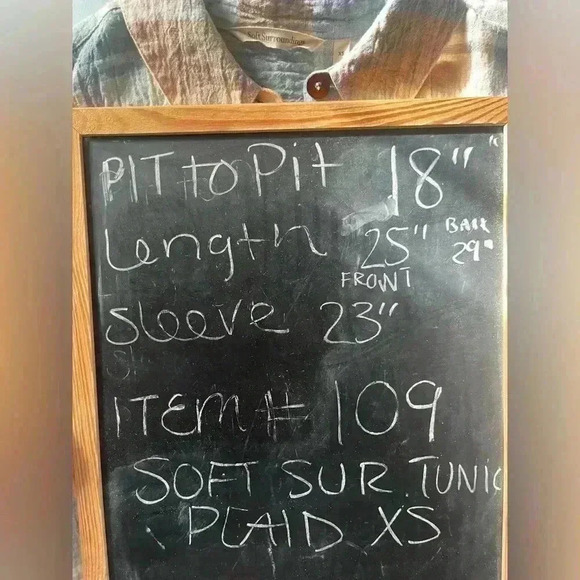 Soft Surroundings
PIT to Pit 18"
Length 25" BACK 29"
FRONT
Sleeve 23"
ITEM # 109
SOFT SUR. TUNIC
PLAID XS